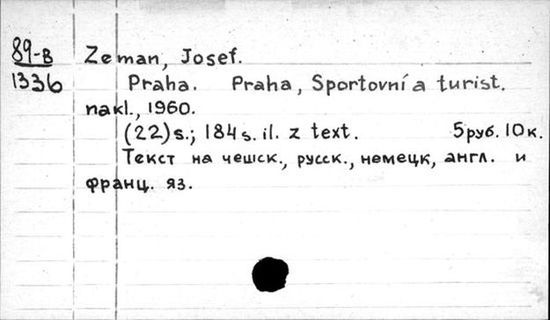 89-в Zeman, Josef.
1336 Praha. Praha, Sportovní a turist.
nakl., 1960.
(22)s.; 184s. il. z text. 5руб. 10к.
Текст на чешск., русск., немецк, англ. и
франц. яз.